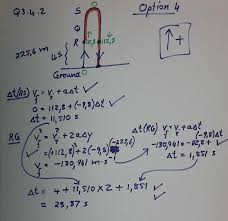 Q3.4.2
Option 4
S
Q
R
112,8
112,8
225,6 m
4s
Ground
0
↑+
Δt(RS) Vf = Vi + aΔt
0 = 112,8 + (-9,8) Δt
Δt = 11,510 s
RG
Vf² = Vi² + 2aΔy
= (+112,8)² + 2(-9,8)(-225,6)
Vf = -130,941 m·s⁻¹
Δt(RG) Vf = Vi + aΔt
-130,941 = -112,8 + (-9,8)Δt
Δt = 1,851 s
Δt = 4 + 11,510 × 2 + 1,851
= 28,87 s